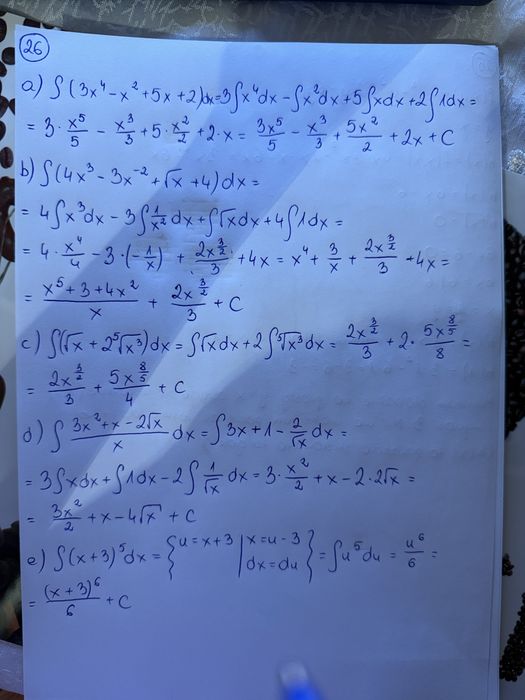 26
a) ∫(3x⁴ - x² + 5x + 2)dx = 3∫x⁴dx - ∫x²dx + 5∫xdx + 2∫1dx =
= 3 · x⁵/5 - x³/3 + 5 · x²/2 + 2 · x = 3x⁵/5 - x³/3 + 5x²/2 + 2x + C
b) ∫(4x³ - 3x⁻² + √x + 4)dx =
= 4∫x³dx - 3∫1/x² dx + ∫√x dx + 4∫1dx =
= 4 · x⁴/4 - 3 · (-1/x) + 2x^(3/2)/3 + 4x = x⁴ + 3/x + 2x^(3/2)/3 + 4x =
= (x⁵ + 3 + 4x²)/x + 2x^(3/2)/3 + C
c) ∫(√x + 2⁵√x³)dx = ∫√x dx + 2∫⁵√x³ dx = 2x^(3/2)/3 + 2 · 5x^(8/5)/8 =
= 2x^(3/2)/3 + 5x^(8/5)/4 + C
d) ∫ (3x² + x - 2√x)/x dx = ∫3x + 1 - 2/√x dx =
= 3∫xdx + ∫1dx - 2∫1/√x dx = 3 · x²/2 + x - 2 · 2√x =
= 3x²/2 + x - 4√x + C
e) ∫(x + 3)⁵dx = {u = x + 3 | x = u - 3 dx = du} = ∫u⁵du = u⁶/6 =
= (x + 3)⁶/6 + C